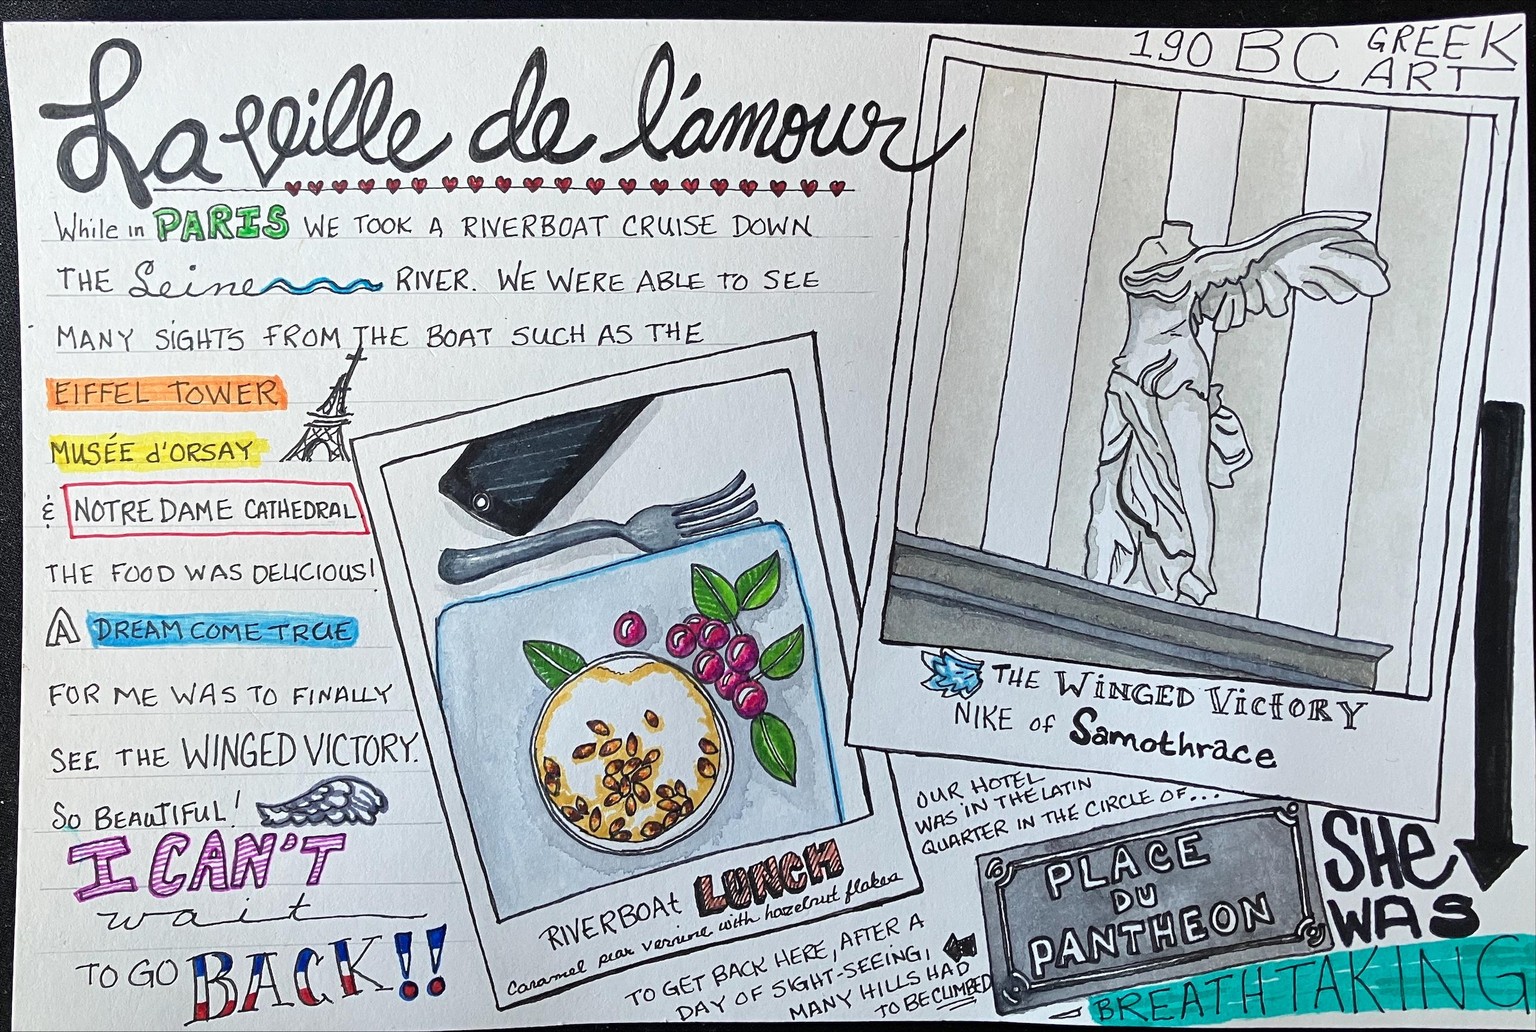 La Ville de l'amour
While in PARIS WE TOOK A RIVERBOAT CRUISE DOWN
THE Seine RIVER. WE WERE ABLE TO SEE
MANY SIGHTS FROM THE BOAT SUCH AS THE
EIFFEL TOWER
MUSÉE d'ORSAY
& NOTRE DAME CATHEDRAL
THE FOOD WAS DELICIOUS!
A DREAM COME TRUE
FOR ME WAS TO FINALLY
SEE THE WINGED VICTORY.
SO BEAUTIFUL!
I CAN'T
wait
TO GO BACK!!
RIVERBOAT LUNCH
Caramel pear verrine with hazelnut flakes
190 BC GREEK
ART
THE WINGED VICTORY
NIKE OF Samothrace
OUR HOTEL
WAS IN THE LATIN
QUARTER IN THE CIRCLE OF...
PLACE
DU
PANTHEON
TO GET BACK HERE, AFTER A
DAY OF SIGHT-SEEING,
MANY HILLS HAD
TO BE CLIMBED
SHE
WAS
BREATHTAKING